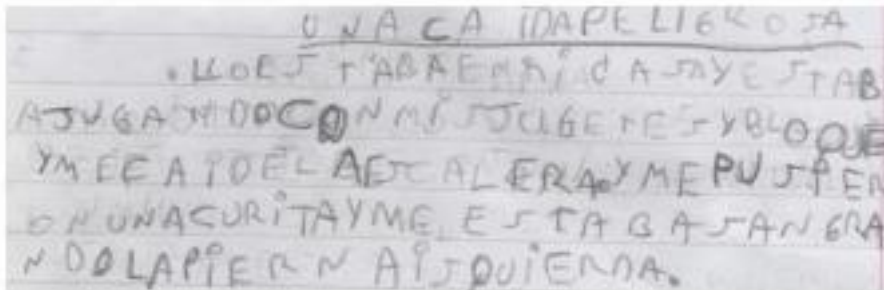 UNA CA IDAPELIGROSA
.LLOESTABAENMiCASAYESTAB
AJUGANDOCONMiSJUGETESYBLOQUE
YMECAiDELAESCALERA.YMEPUSiER
ONUNACURiTAYMEESTABASANGRA
NDOLAPiERNAiSQUiERDA.